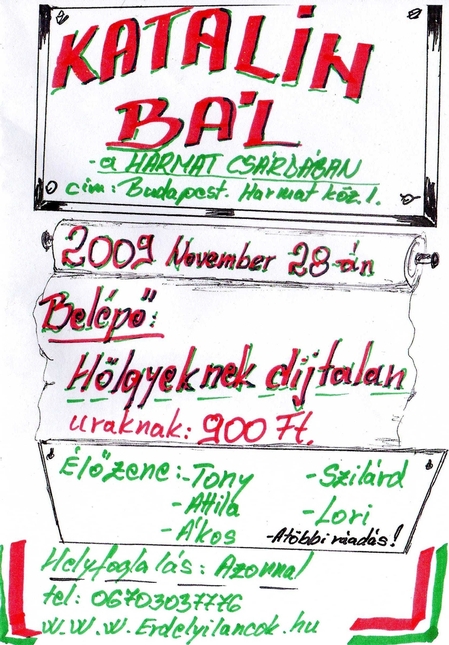 KATALIN
BÁL
-a HARMAT CSÁRDÁBAN
cím: Budapest. Harmat köz.1.
2009 November 28-án
Belépő:
Hölgyeknek díjtalan
uraknak: 900 Ft.
Élőzene:-Tony -Szilárd
-Attila -Lori
-Ákos -Atöbbi ráadás!
Helyfoglalás: Azonnal
tel: 06703037776
W.W.W.Erdelyilancok.hu